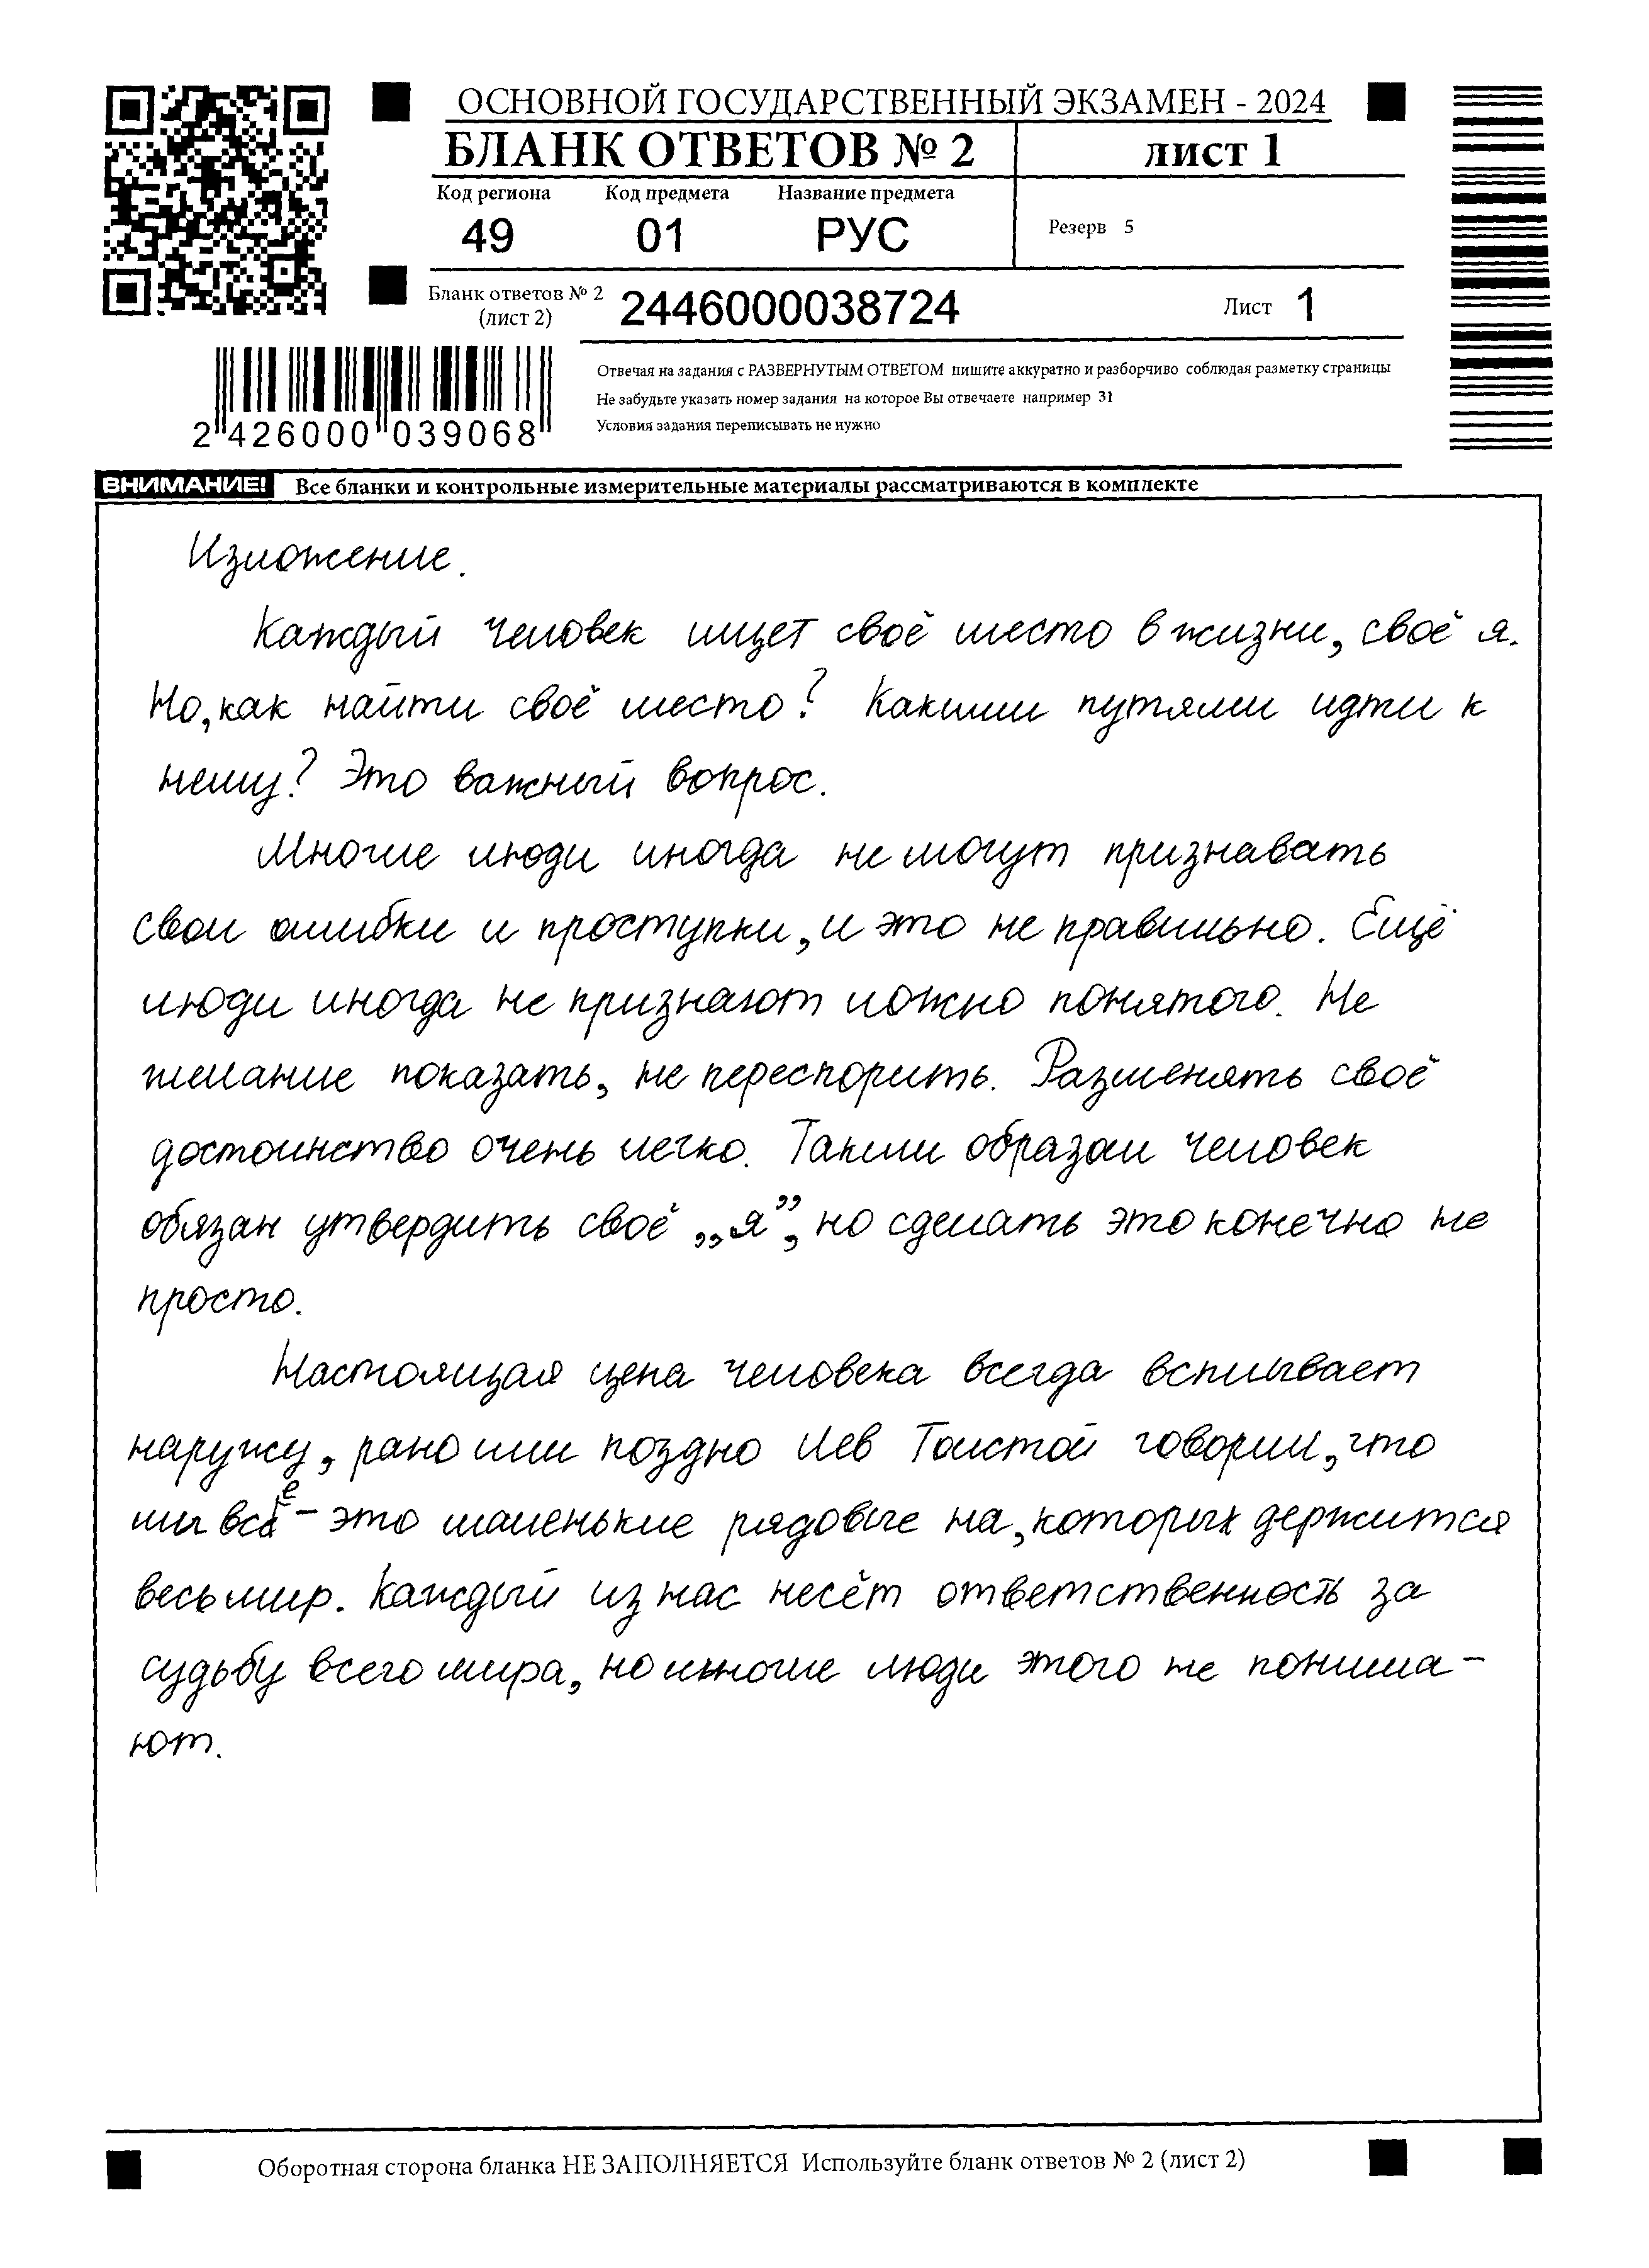 ОСНОВНОЙ ГОСУДАРСТВЕННЫЙ ЭКЗАМЕН - 2024
БЛАНК ОТВЕТОВ № 2
лист 1
Код региона Код предмета Название предмета
49 01 РУС
Резерв 5
Бланк ответов № 2
(лист 2)
2446000038724
Лист 1
2 426000 039068
Отвечая на задания с РАЗВЕРНУТЫМ ОТВЕТОМ пишите аккуратно и разборчиво соблюдая разметку страницы
Не забудьте указать номер задания на которое Вы отвечаете например 31
Условия задания переписывать не нужно
ВНИМАНИЕ! Все бланки и контрольные измерительные материалы рассматриваются в комплекте
Изложение.
Каждый человек ищет своё место в жизни, своё я.
Но, как найти своё место? Какими путями идти к
нему? Это важный вопрос.
Многие люди иногда не могут признавать
свои ошибки и проступки, и это не правильно. Ещё
люди иногда не признают ложно понятого. Не
желание показать, не переспорить. Разменять своё
достоинство очень легко. Таким образом человек
обязан утвердить своё „я”, но сделать это конечно не
просто.
Настоящая цена человека всегда всплывает
наружу, рано или поздно Лев Толстой говорил, что
мы все – это маленькие рядовые на, которых держится
весь мир. Каждый из нас несёт ответственность за
судьбу всего мира, но многие люди этого не понима-
ют.
Оборотная сторона бланка НЕ ЗАПОЛНЯЕТСЯ Используйте бланк ответов № 2 (лист 2)